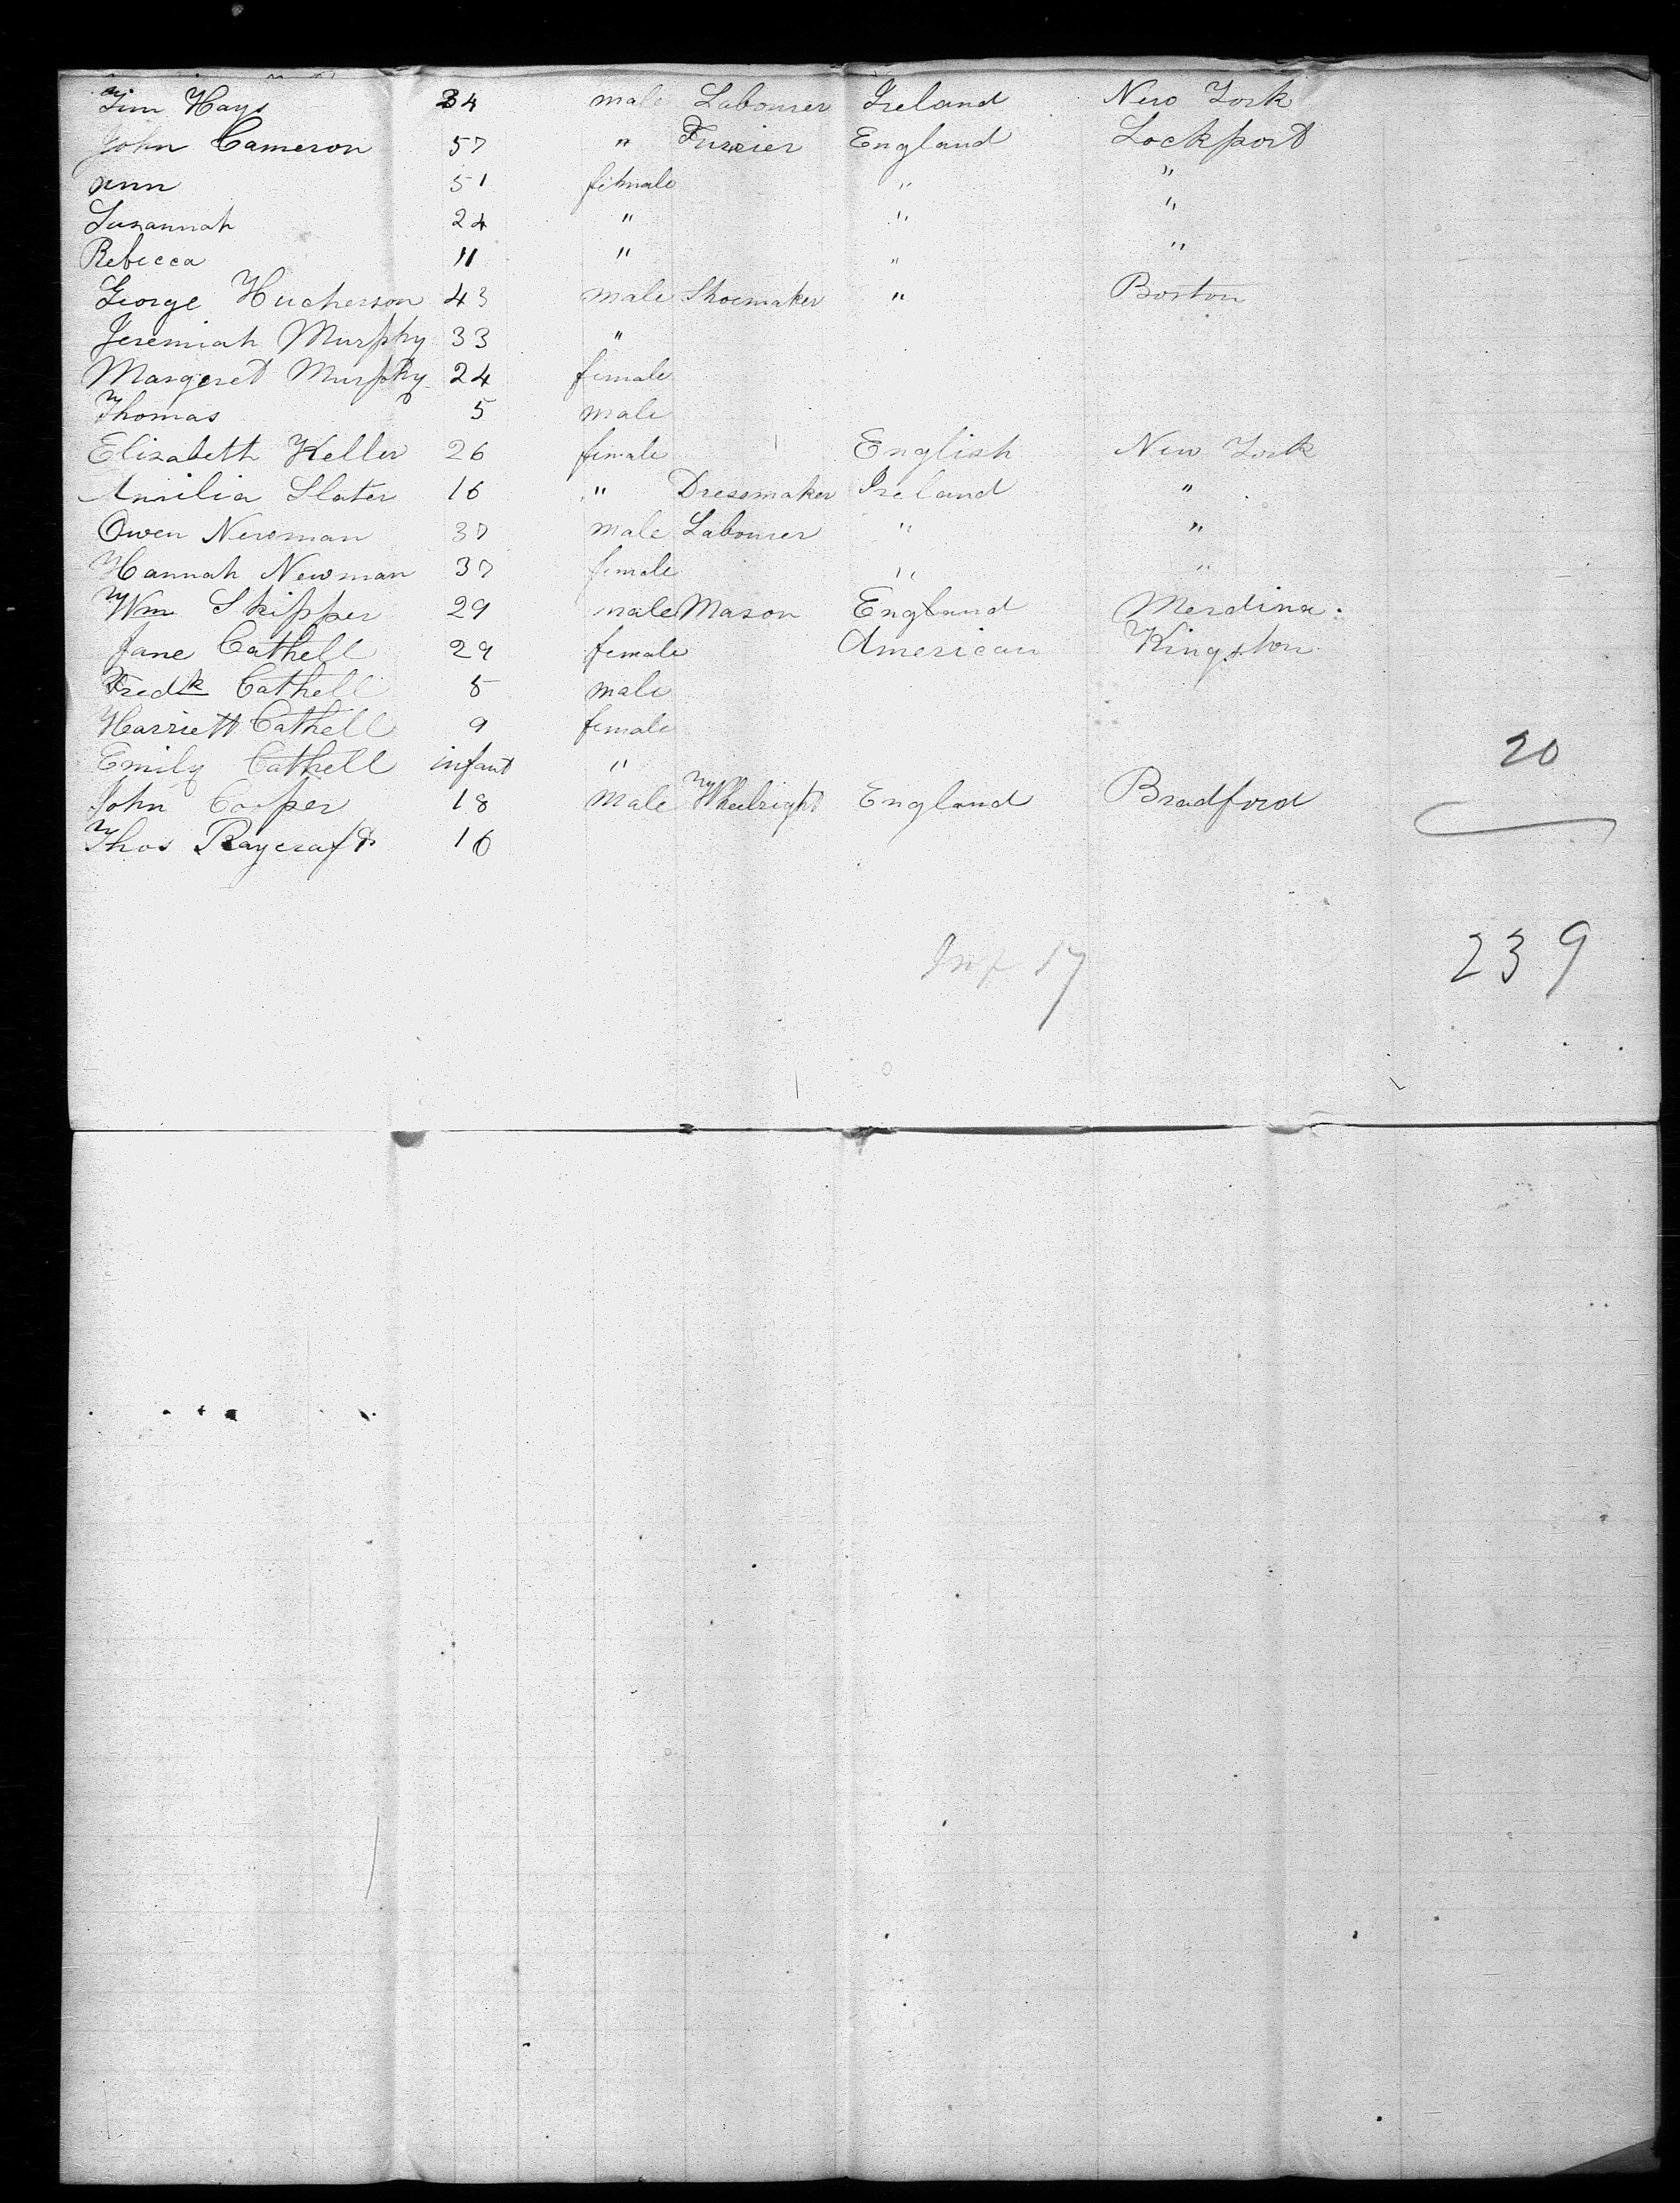 Tim Hays 34 male Labourer Ireland New York
John Cameron 57 " Furrier England Lockport
Ann 51 female " "
Susannah 24 " " "
Rebecca 11 " " "
George Hucherson 43 male Shoemaker " Boston
Jeremiah Murphy 33 "
Margeret Murphy 24 female
Thomas 5 male
Elizabeth Keller 26 female English New York
Amilia Slater 16 " Dressmaker Ireland "
Owen Newman 37 male Labourer " "
Hannah Newman 37 female " "
Wm Skipper 29 male Mason England Merdina.
Jane Cathell 29 female American Kingston
Fredk Cathell 5 male
Harriett Cathell 9 female
Emily Cathell infant "
20
John Cooper 18 Male Wheelright England Bradford
Thos Raycraft 16
Inf 17
239